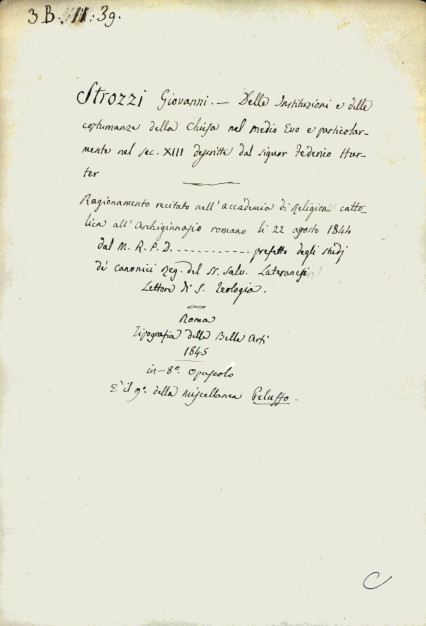 3 B. II. 39.
Strozzi Giovanni. — Delle Instituzioni e delle
costumanze della Chiesa nel medio Evo e particolar-
mente nel sec. XIII descritte dal signor Federico Hur-
ter
Ragionamento recitato nell'accademia di Religion catto-
lica all'Archiginnasio romano li 22 agosto 1844
dal M. R. P. D. ............ prefetto degli studj
de' canonici Reg. del SS. Salv. Lateranesi
Lettore di S. Teologia.
Roma
Tipografia delle Belle Arti
1845
in-8º. opuscolo
È il 9º. della miscellanea Peluffo.
C